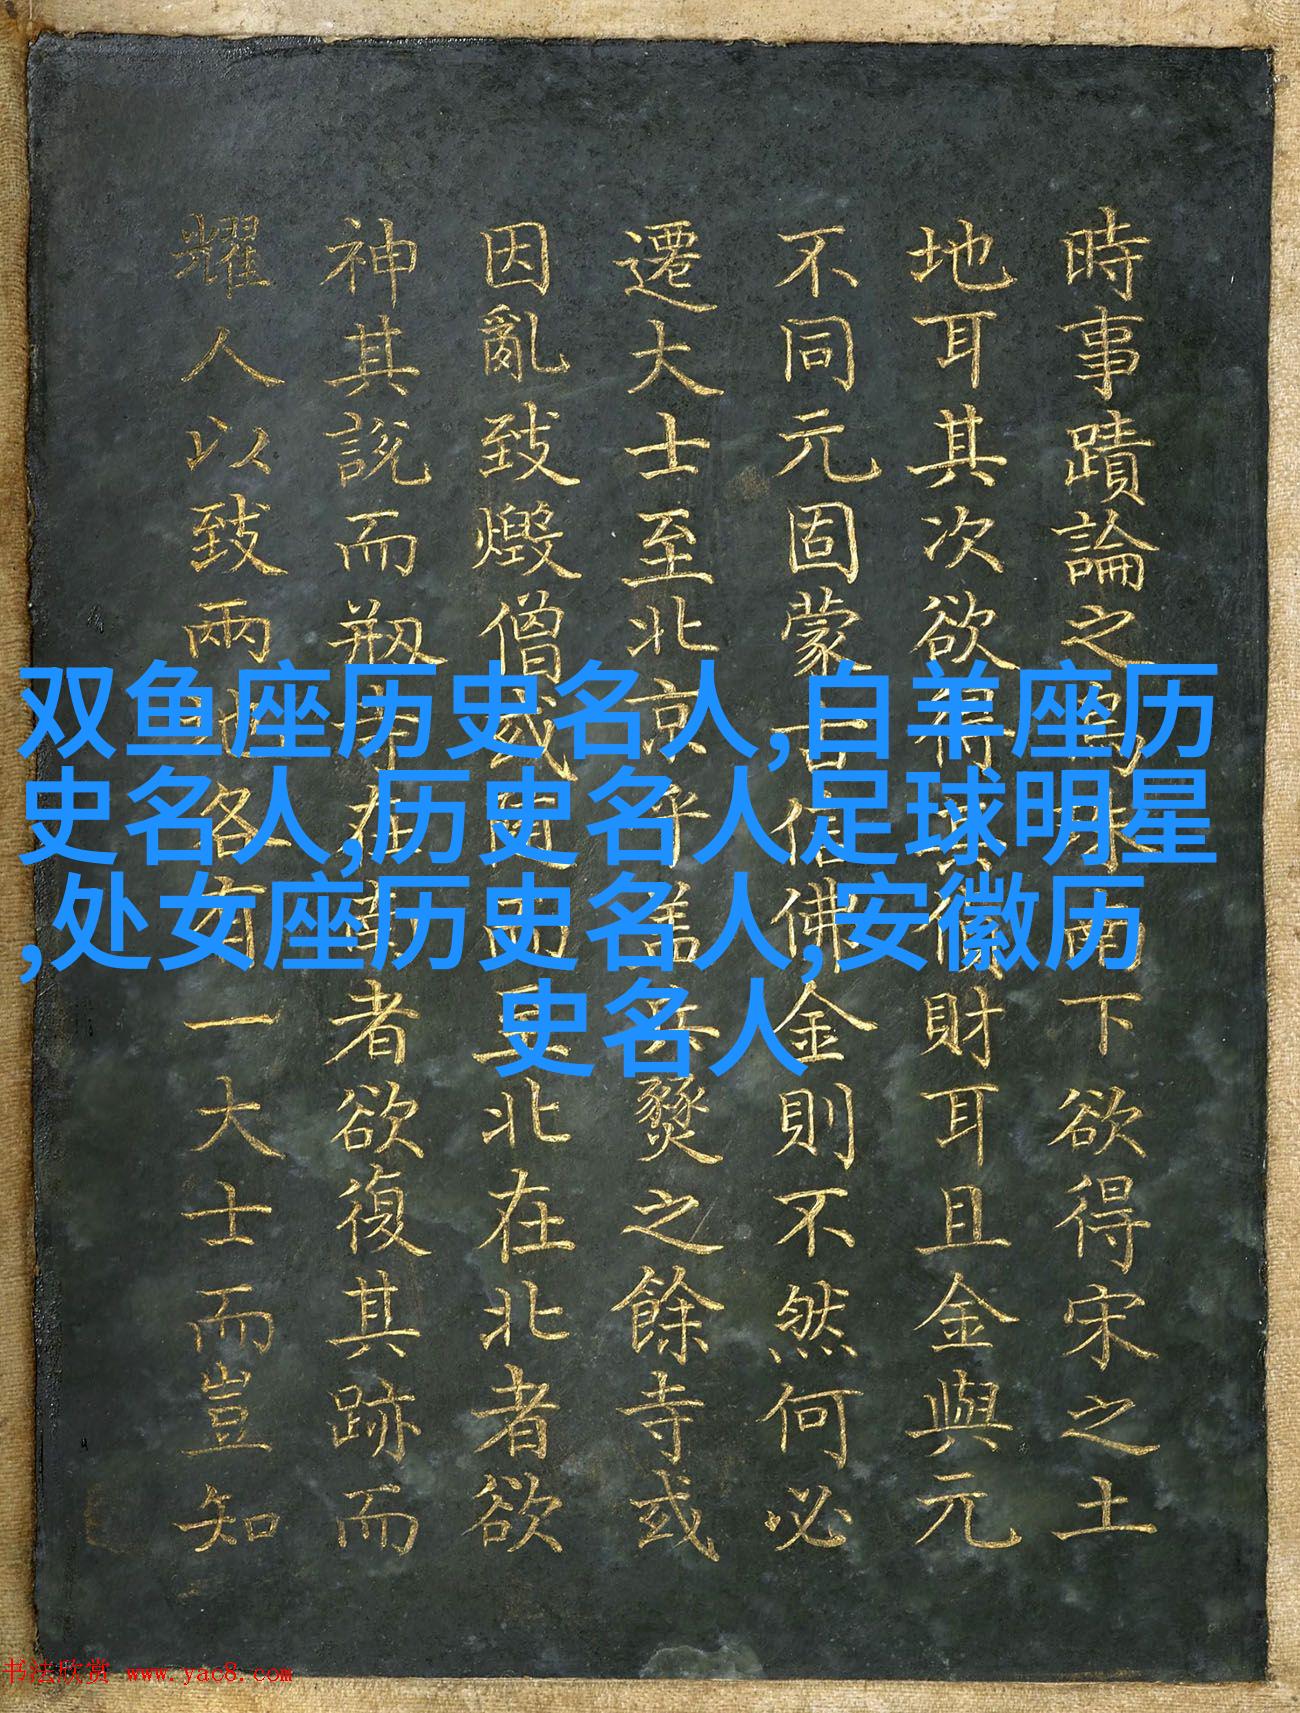 時事蹟論之烏珠南下欲得宋之土
地耳其次欲得財耳且金與元
不同元固蒙古信佛金則不然何必
遷大士至北京乎葢兵燹之餘寺或
因亂致燬僧或而北在北者欲
神其說而刱在南者欲復其跡而
耀人以致兩地各有一大士而豈知
双鱼座历史名人,白羊座历
史名人,历史名人足球明星
,处女座历史名人,安徽历
史名人
书法欣赏 www.yac8.com